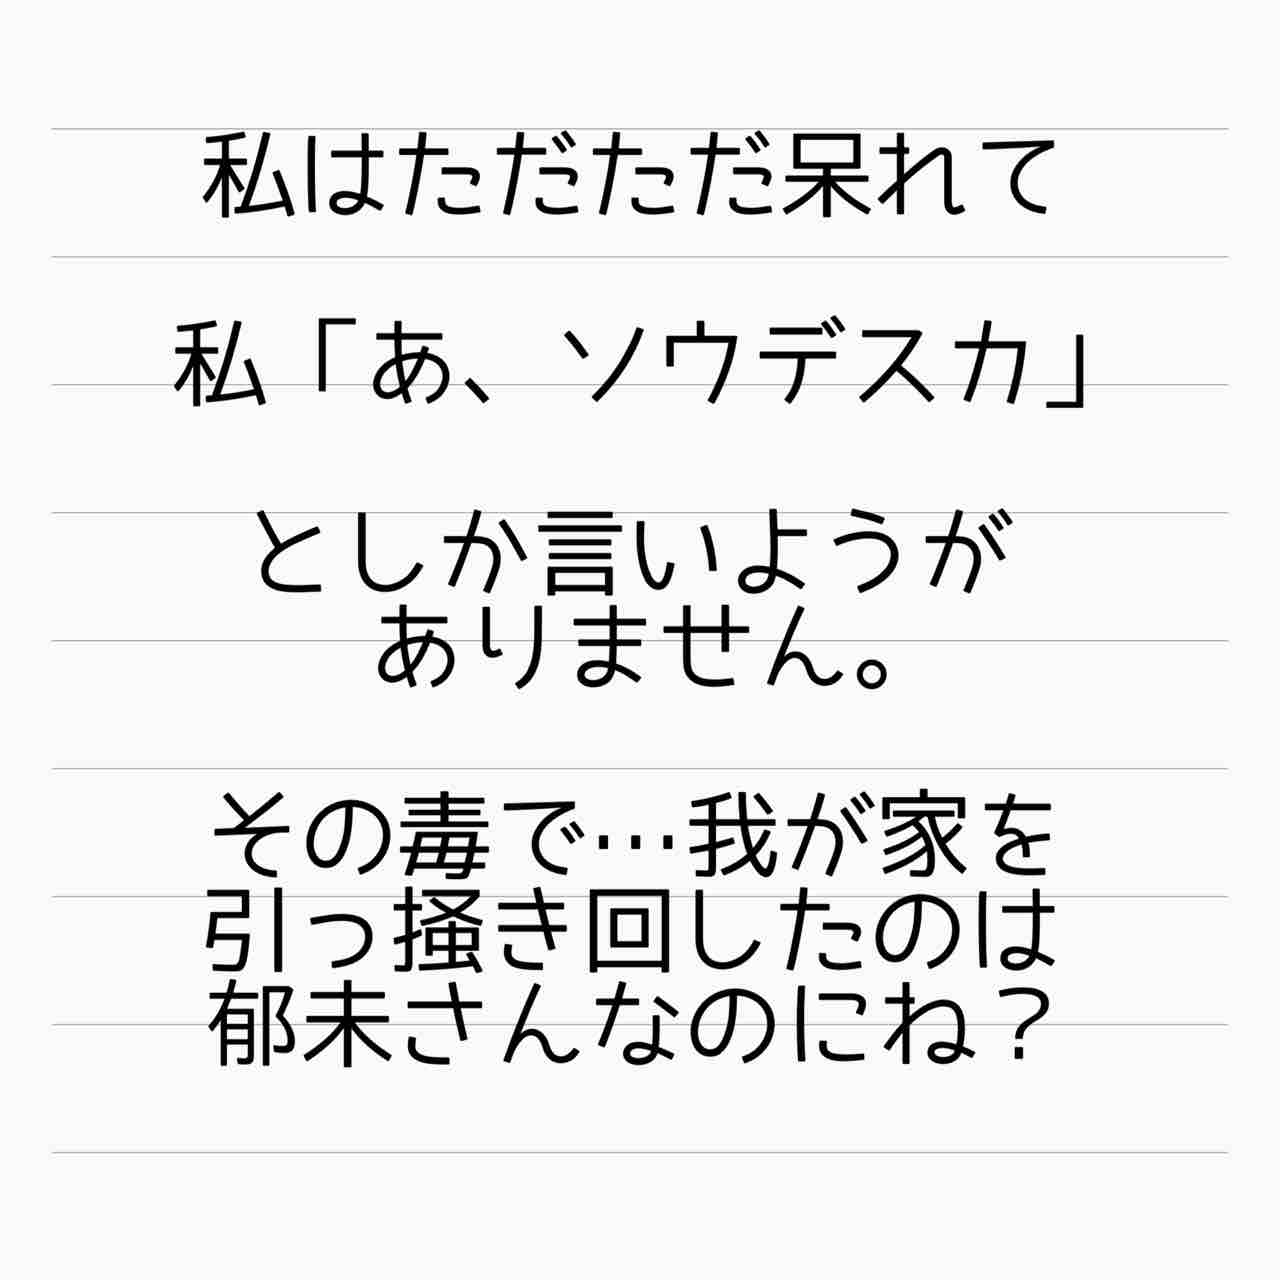 私はただただ呆れて
私「あ、ソウデスカ」
としか言いようが
ありません。
その毒で…我が家を
引っ掻き回したのは
郁未さんなのにね？